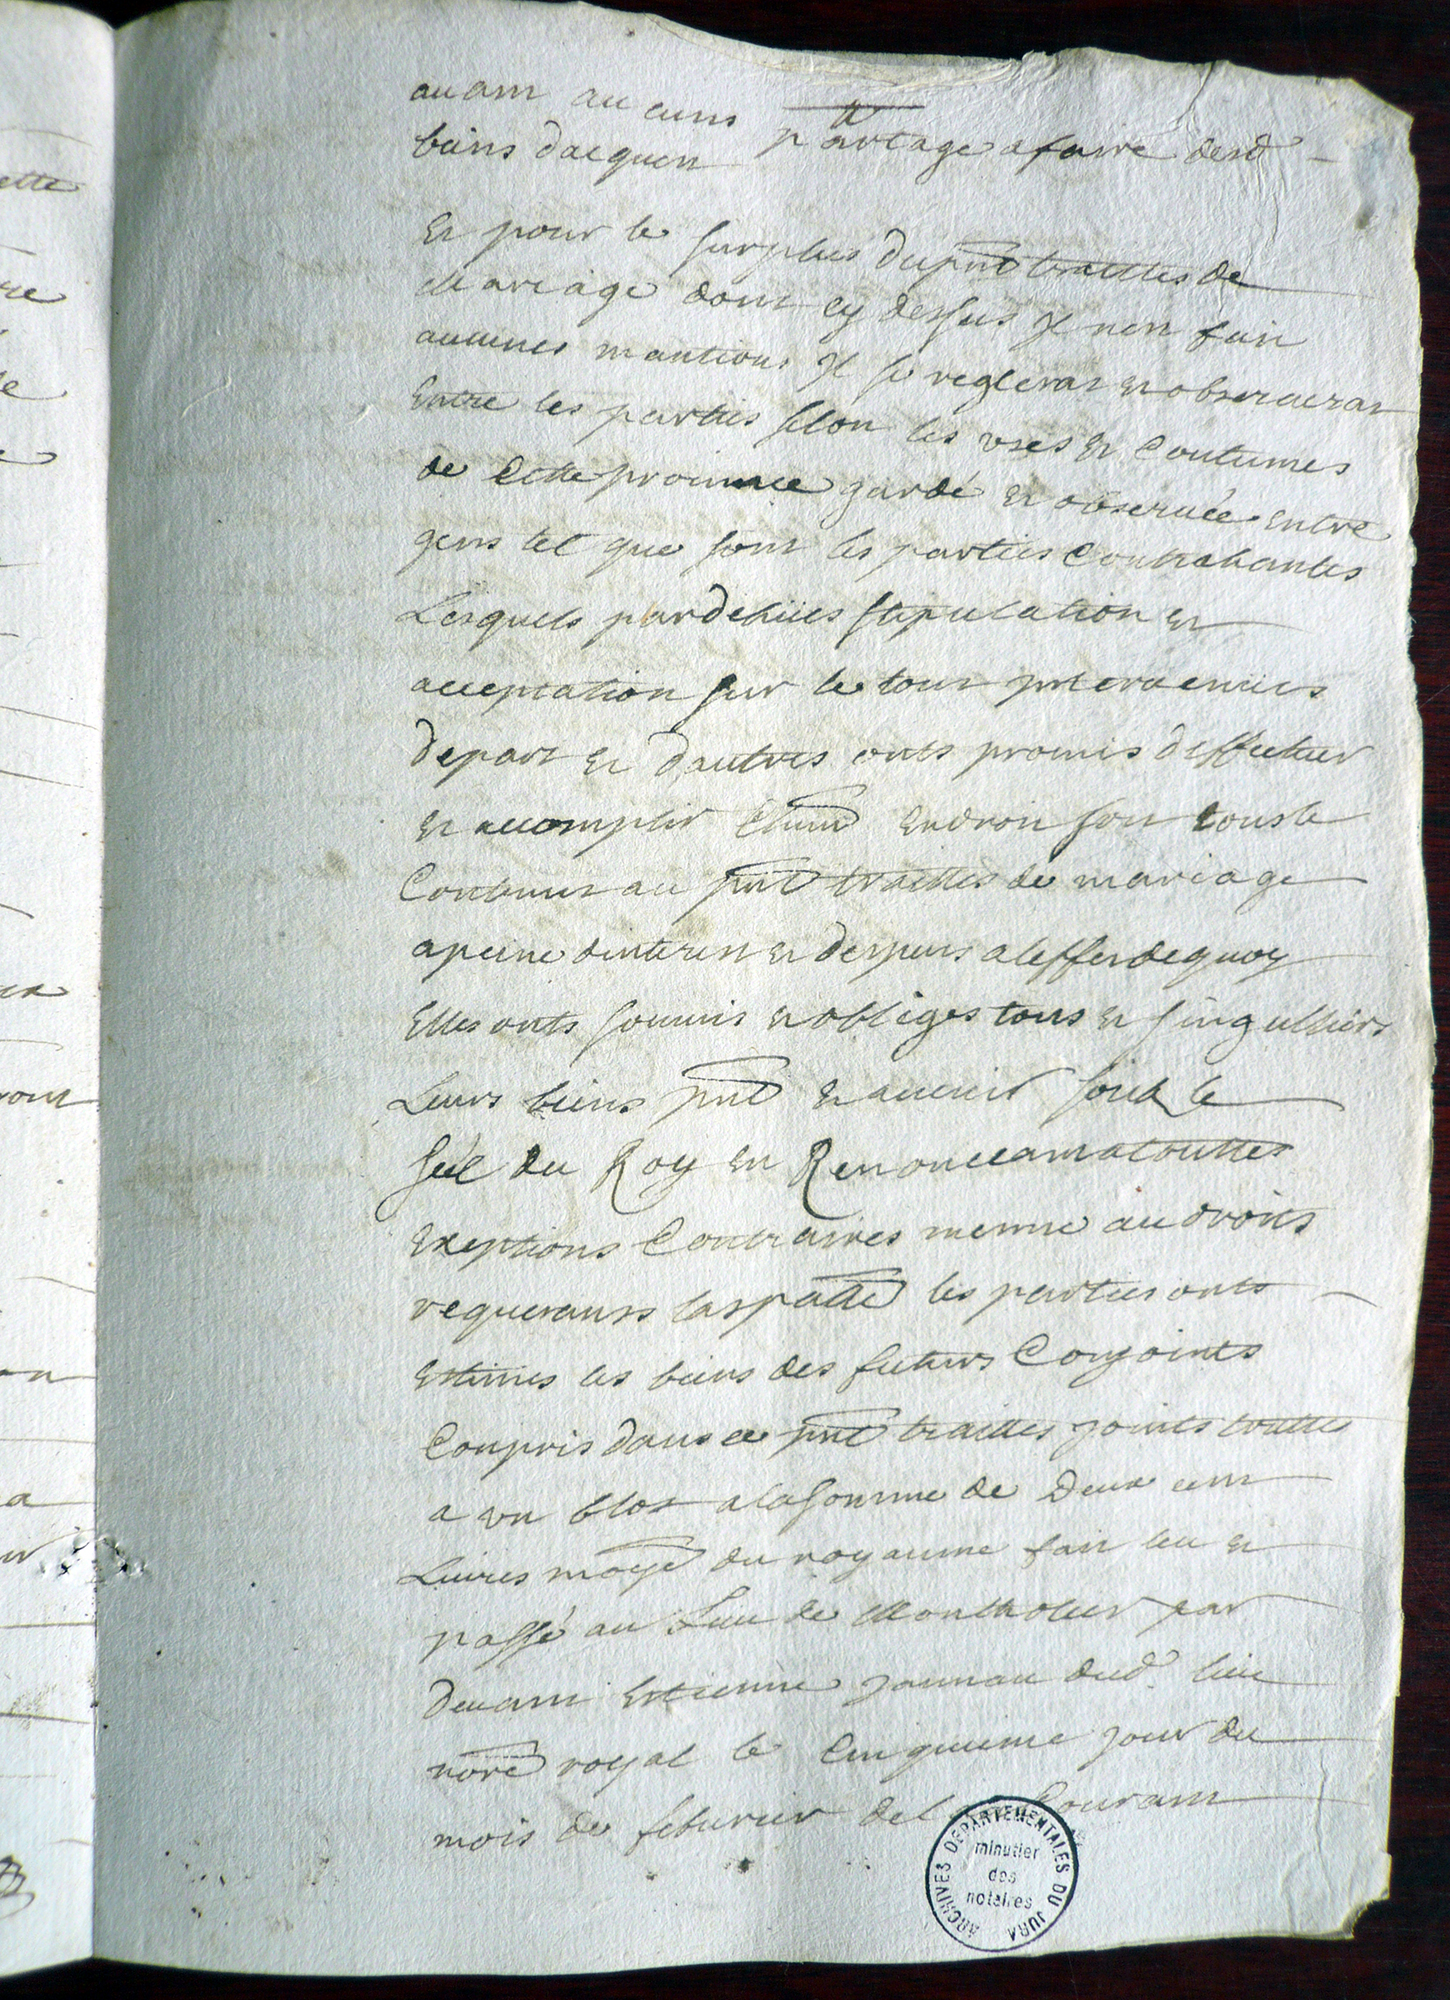 auant aucuns partage a faire desd
biens dacquest
Et pour le surplus du pnt traittes de
Mariage dont cy dessus Il nest fait
aucunes mantions Il se regleras et obserueras
Entre les parties selon les vses et Coutumes
de Cette prouince gardé et obseruée entre
gens tel que sont les parties Contrahantes
Lesquels par dehües stipulation et
acceptation sur le tout interuenües
depart et dautres onts promis deffectuer
et accomplir Chun endroit soit tous le
Contenut au pnt traittes de mariage
a peine dinterest et despens a leffet de quoy
Elles onts soumis et obliges tous et singulliers
Leurs biens pnt et auenir sous le
séel du Roy et Renonceant a touttes
Exeptions Contraires menme au droits
requerants les parties onts
Estimes les biens des futurs Conjoints
Conpris dans ce pnt traittes joints touttes
a vn blot a la somme de Deux cent
Liures monoye du royaume fait leu et
passé au Lieu de Montholier par
deuant Estienne Jaunau dud. lieu
nore royal le Cinquieme jour du
mois de feburier de Courant
ARCHIVES DEPARTEMENTALES DU JURA
minutier
des
notaires